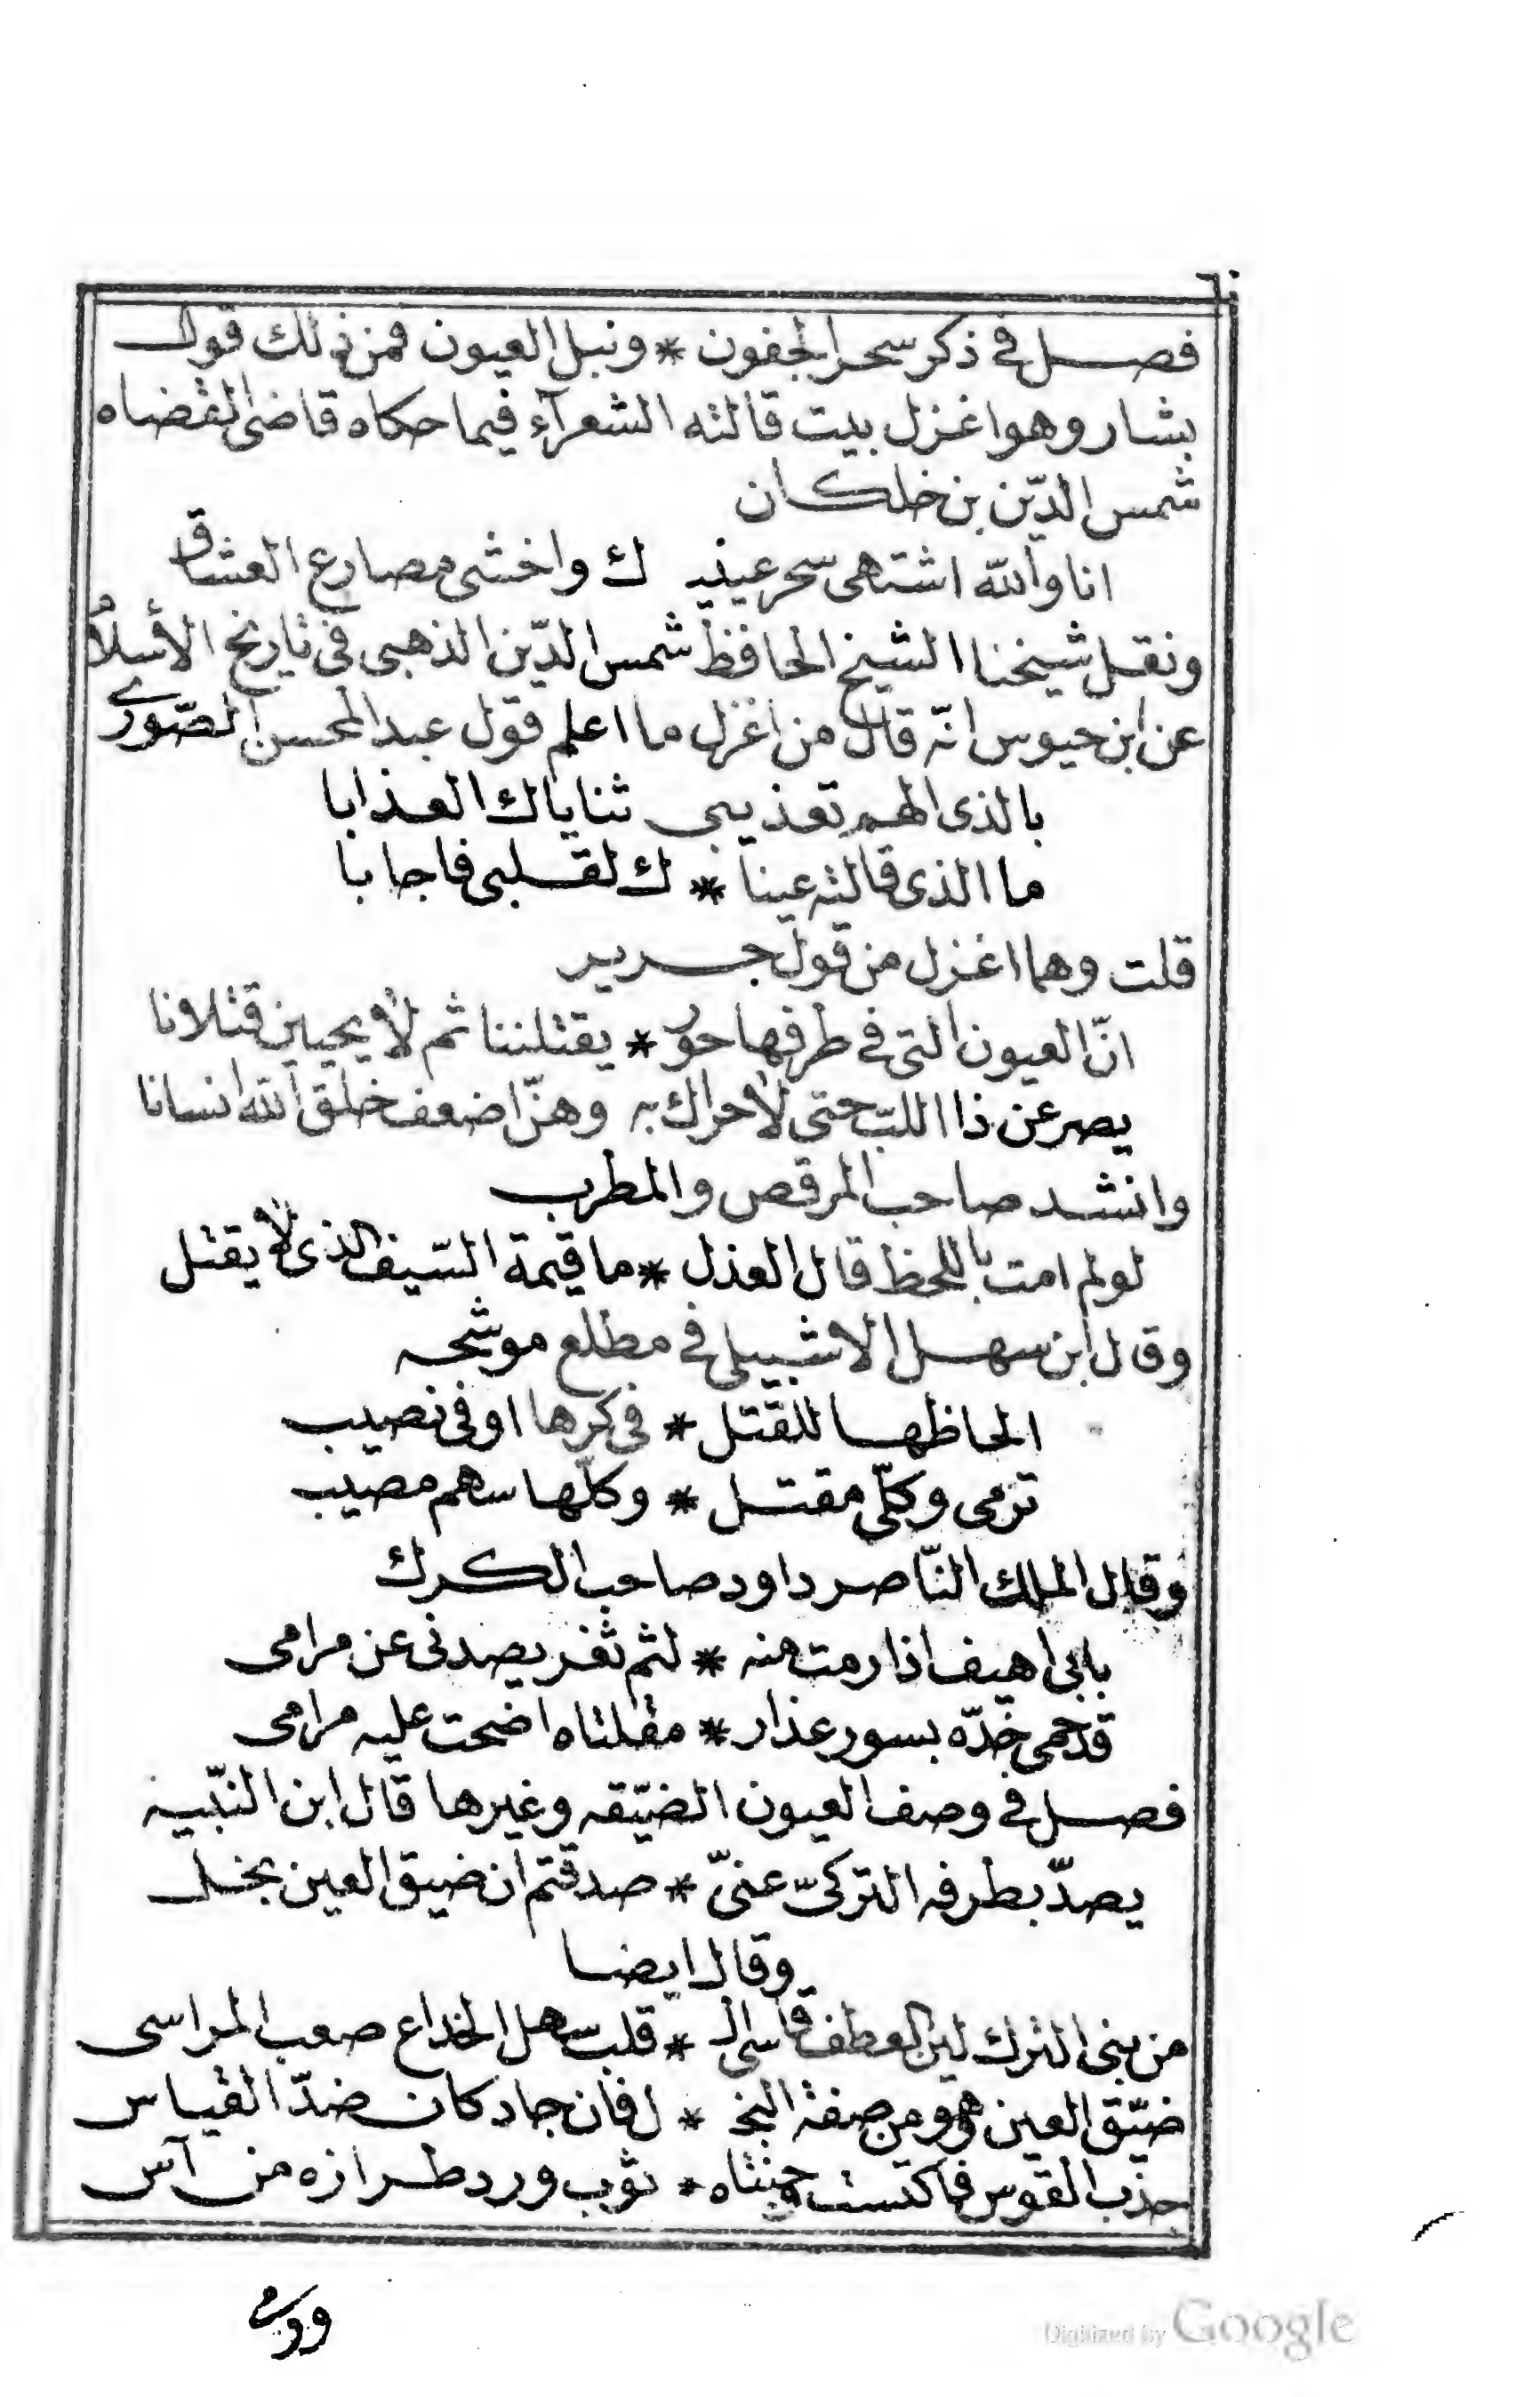 فصل في ذكر سحر الجفون * ونبل العيون فمن ذلك قول
بشار وهو اغزل بيت قالته الشعرآء فيما حكاه قاضى القضاه
شمس الدّين بن خلكان
انا والله اشتهى سحر عينيـ ـك واخشى مصارع العشاق
ونقل شيخنا الشيخ الحافظ شمس الدّين الذهبى فى تاريخ الأسلام
عن ابن حيوس انّه قال من اغزل ما اعلم قول عبد المحسن الصّورى
بالذى الهم تعذيبى ثناياك العذابا
ما الذى قالته عينا * ك لقلبى فاجابا
قلت وهما اغزل من قول جرير
انّ العيون التى فى طرفها حور * يقتلننا ثم لا يحيين قتلانا
يصرعن ذا اللبّ حتى لا حراك به وهنّ اضعف خلق الله انسانا
وانشد صاحب المرقص والمطرب
لولم امت باللحظ قال العذل * ما قيمة السّيف الذى لا يقتل
وقال ابن سهل الاشبيلى فى مطلع موشحه
الحاظها للقتل * فى كرها اوفى نصيب
ترمى وكلّى مقتل * وكلّها سهم مصيب
وقال الملك النّاصر داود صاحب الكرك
بابى اهيف اذا رمت منه * لثم ثغر يصدنى عن مرامى
قد حمى خدّه بسور عذار * مقلتاه اضحت عليه مرامى
فصل في وصف العيون الضيّقه وغيرها قال ابن النّبيه
يصدّ بطرفه التركىّ عنىّ * صدقتم ان ضيق العين بخل
وقال ايضا
من بنى الترك لين العطف قاسى الـ * قلب سهل الخداع صعب المراسى
ضيّق العين وهو من صفة البخـ * ل فان جاد كان ضدّ القياس
جذب القوس فاكتست وجنتاه * ثوب ورد طرازه من آس
Digitized by Google